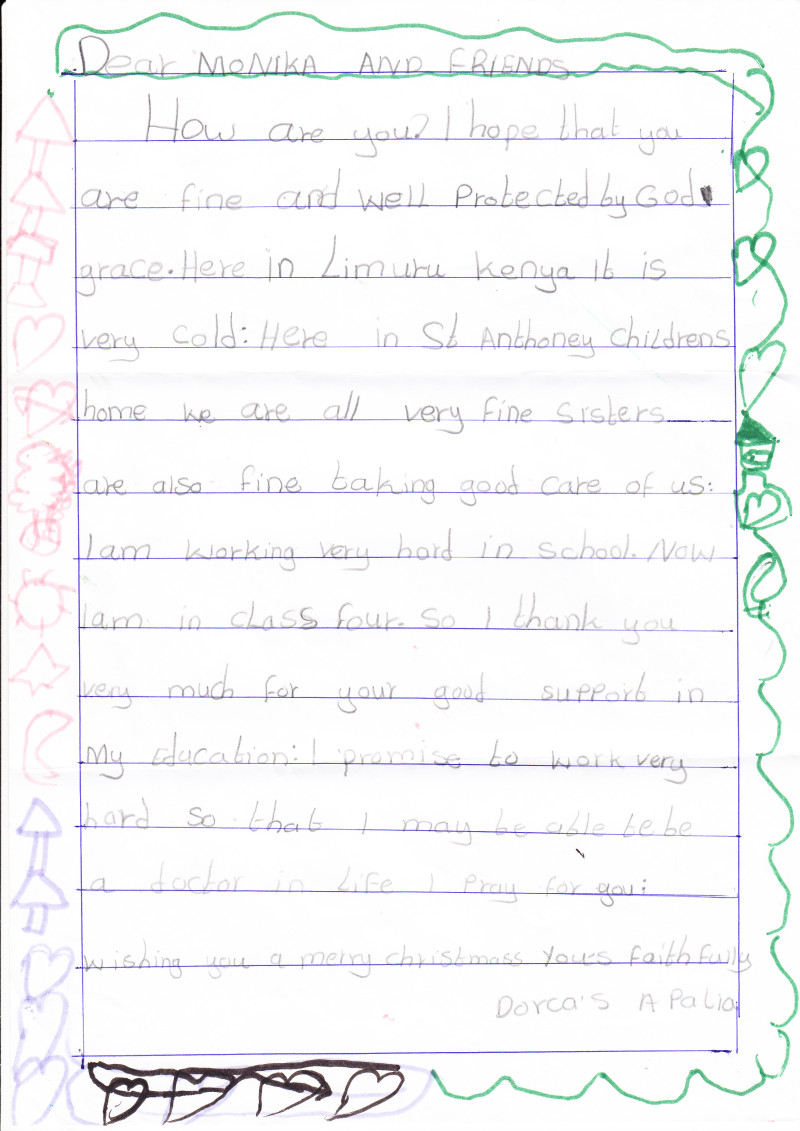 Dear MONIKA AND FRIENDS
How are you? I hope that you
are fine and well Protected by God
grace. Here in Limuru Kenya It is
very cold: Here in St Anthoney childrens
home we are all very fine Sisters
are also fine taking good care of us:
I am working very hard in school. Now
I am in class four. So I thank you
very much for your good support in
My Education: I promise to work very
hard so that I may be able te be
a doctor in Life I Pray for you:
wishing you a merry christmass Yours faithfully
Dorca's APalia